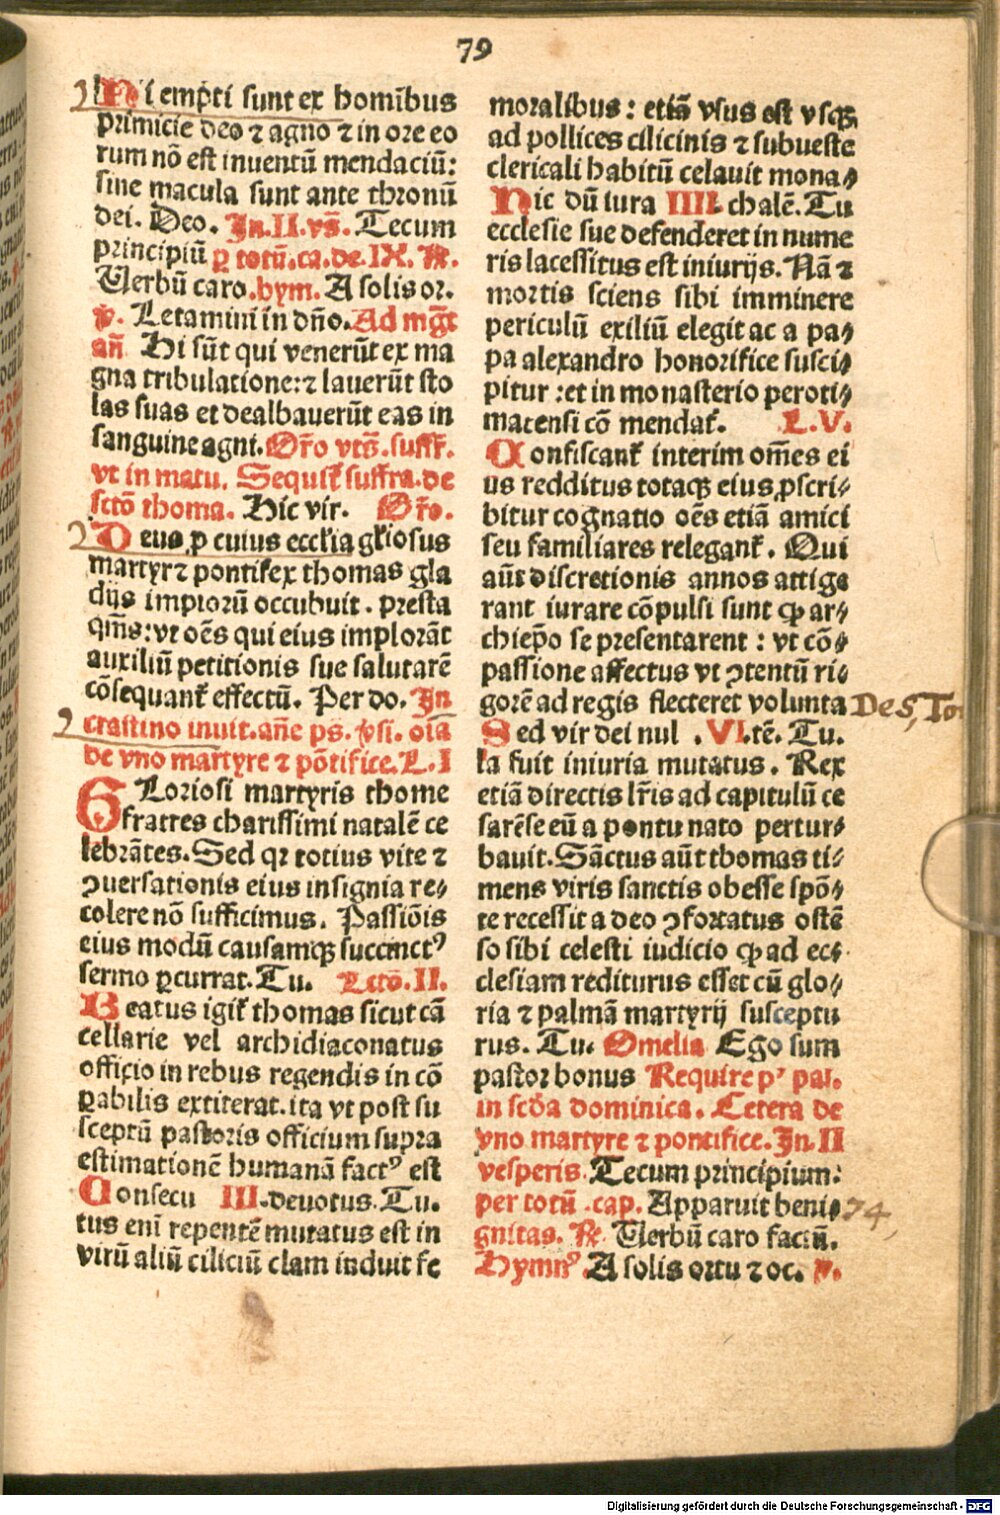 79
Hi empti sunt ex homībus
primicie deo ⁊ agno ⁊ in ore eo
rum nō est inuentū mendaciū:
sine macula sunt ante thronū
dei. Deo. In.II.vs̄. Tecum
principiū ꝑ totū.ca.de.IX. R.
Verbū caro.hym. A solis or.
v. Letamini in dn̄o. Ad mg̅t
an̄ Hi sūt qui venerūt ex ma
gna tribulatione:⁊ lauerūt sto
las suas et dealbauerūt eas in
sanguine agni. Or̄o vts̄. suffr̄.
vt in matu. Sequit̄ suffra. de
sctō thoma. Hic vir. Or̄o.
Deus, ꝓ cuius eccl̄ia gl̄iosus
martyr⁊ pontifex thomas gla
dijs impiorū occubuit. presta
qm̄s: vt oēs qui eius implorāt
auxiliū petitionis sue salutarē
cōsequant̄ effectū. Per do. In
crastino inuit. ane ps. ꝟsi. oīa
de vno martyre ⁊ pōtifice. L.I
GLoriosi martyris thome
fratres charissimi natalē ce
lebrātes. Sed qꝛ totius vite ⁊
ꝯuersationis eius insignia re⸗
colere nō sufficimus. Passiōis
eius modū causamqꝫ succinctꝰ
sermo ꝑcurrat. Tu. Lctō.II.
Beatus igit̄ thomas sicut cā
cellarie vel archidiaconatus
officio in rebus regendis in cō
ꝑabilis extiterat. ita vt post su
sceptū pastoris officium supra
estimationē humanā factꝰ est
Consecu III. deuotus. Tu.
tus enī repentē mutatus est in
virū aliū ciliciū clam induit fe
moralibus: etiā vsus est vsqꝫ
ad pollices cilicinis ⁊ subueste
clericali habitū celauit mona⸗
Nic dū iura IIII. chalē. Tu
ecclesie sue defenderet in nume
ris lacessitus est iniurijs. Nā ⁊
mortis sciens sibi imminere
periculū exiliū elegit ac a pa⸗
pa alexandro honorifice susci⸗
pitur: et in monasterio peroti⸗
macensi cō mendat̄. L.V.
Confiscant̄ interim om̄es ei
us redditus totaqꝫ eius ꝓscri⸗
bitur cognatio oēs etiā amici
seu familiares relegant̄. Qui
aūt discretionis annos attige
rant iurare cōpulsi sunt ꝙ ar⸗
chiep̄o se presentarent: vt cō⸗
passione affectus vt ꝯtentū ri⸗
gorē ad regis flecteret volunta
Sed vir dei nul . VI. tē. Tu.
la fuit iniuria mutatus. Rex
etiā directis lr̄is ad capitulū ce
sarēse eū a pontu nato pertur⸗
bauit. Sāctus aūt thomas ti⸗
mens viris sanctis obesse spō⸗
te recessit a deo ꝯfortatus ostē
so sibi celesti iudicio ꝙ ad ec⸗
clesiam rediturus esset cū glo⸗
ria ⁊ palmā martyrij susceptu
rus. Tu. Omelia Ego sum
pastor bonus Require pꝰ pas.
in scd̄a dominica. Cetera de
vno martyre ⁊ pontifice. In. II
vesperis. Tecum principium:
per totū .cap. Apparuit beni⸗
gnitas. R. Verbū caro factū.
Hymnꝰ. A solis ortu ⁊ oc. v.
74
Digitalisierung gefördert durch die Deutsche Forschungsgemeinschaft - DFG